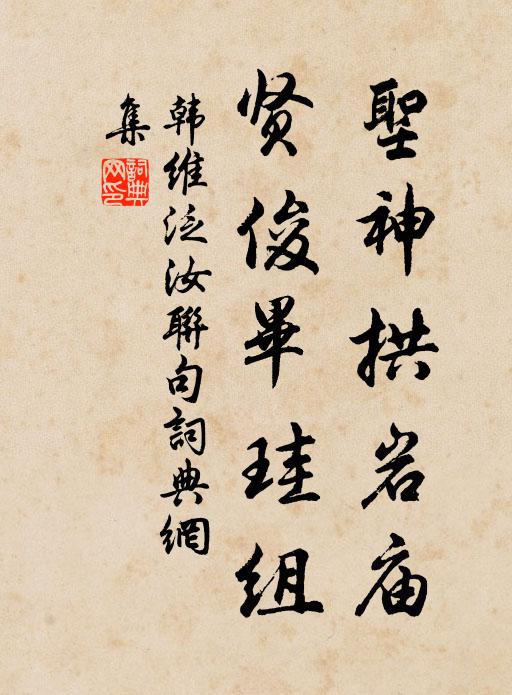 聖神拱岩庙
贤俊畢珪组
韩維泛汝聯句詞典網
集
詞典網印